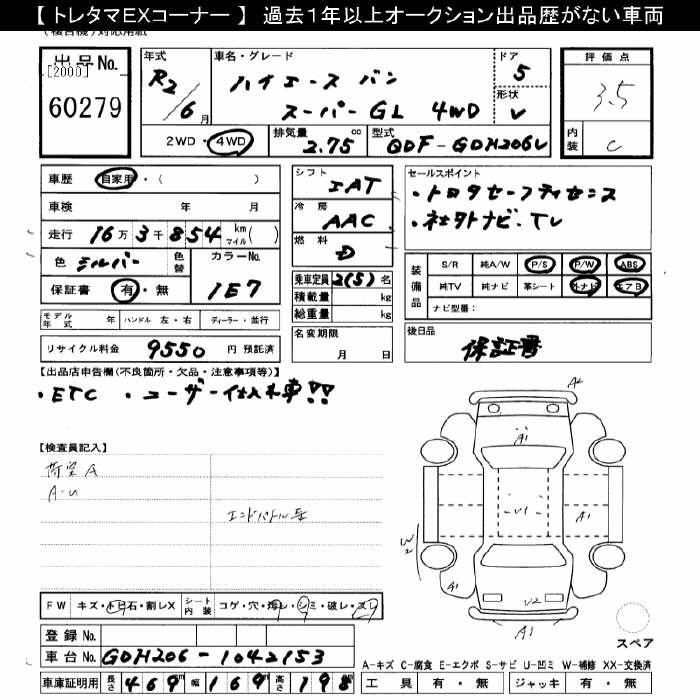 【 トレタマEXコーナー 】 過去１年以上オークション出品歴がない車両
出品No.
[2000]
60279
年式
R2/6月
車名・グレード
ハイエース バン
スーパーGL 4WD
ドア
5
形状
V
評価点
3.5
内装
C
2WD ・ 4WD
排気量
2.75 cc
型式
QDF-GDH206V
車歴
自家用・( )
車検 年 月
走行 16万3千854 km マイル( )
色 シルバー
色替
カラーNo.
1E7
保証書 有・無
シフト
IAT
冷房
AAC
燃料
D
乗車定員 2(5)名
積載量 kg
総重量 kg
セールスポイント
・トヨタセーフティセンス
・社外ナビ・TV
装備品
S/R 純A/W P/S P/W ABS
純TV 純ナビ 革シート 外ナビ エアB
ナビ型番：
モデル年式 年 ハンドル 左・右 ディーラー・並行
リサイクル料金 9550 円 預託済
名変期限
月 日
後日品
保証書
【出品店申告欄(不良箇所・欠品・注意事項等)】
・ETC ・ユーザー仕入れ車!!
【検査員記入】
荷室A
A-U
A2
A1
V1
A1
W2
A1
V2
A1
FW キズ・トビ石・割レX
シート内装 コゲ・穴・汚レ・シミ・破レ・スレ
登録No.
車台No. GDH206-1042153
車庫証明用 長さ 469 幅 169 高さ 198
スペア
A-キズ C-腐食 E-エクボ S-サビ U-凹ミ W-補修 XX-交換済
工具 有・無 ジャッキ 有・無